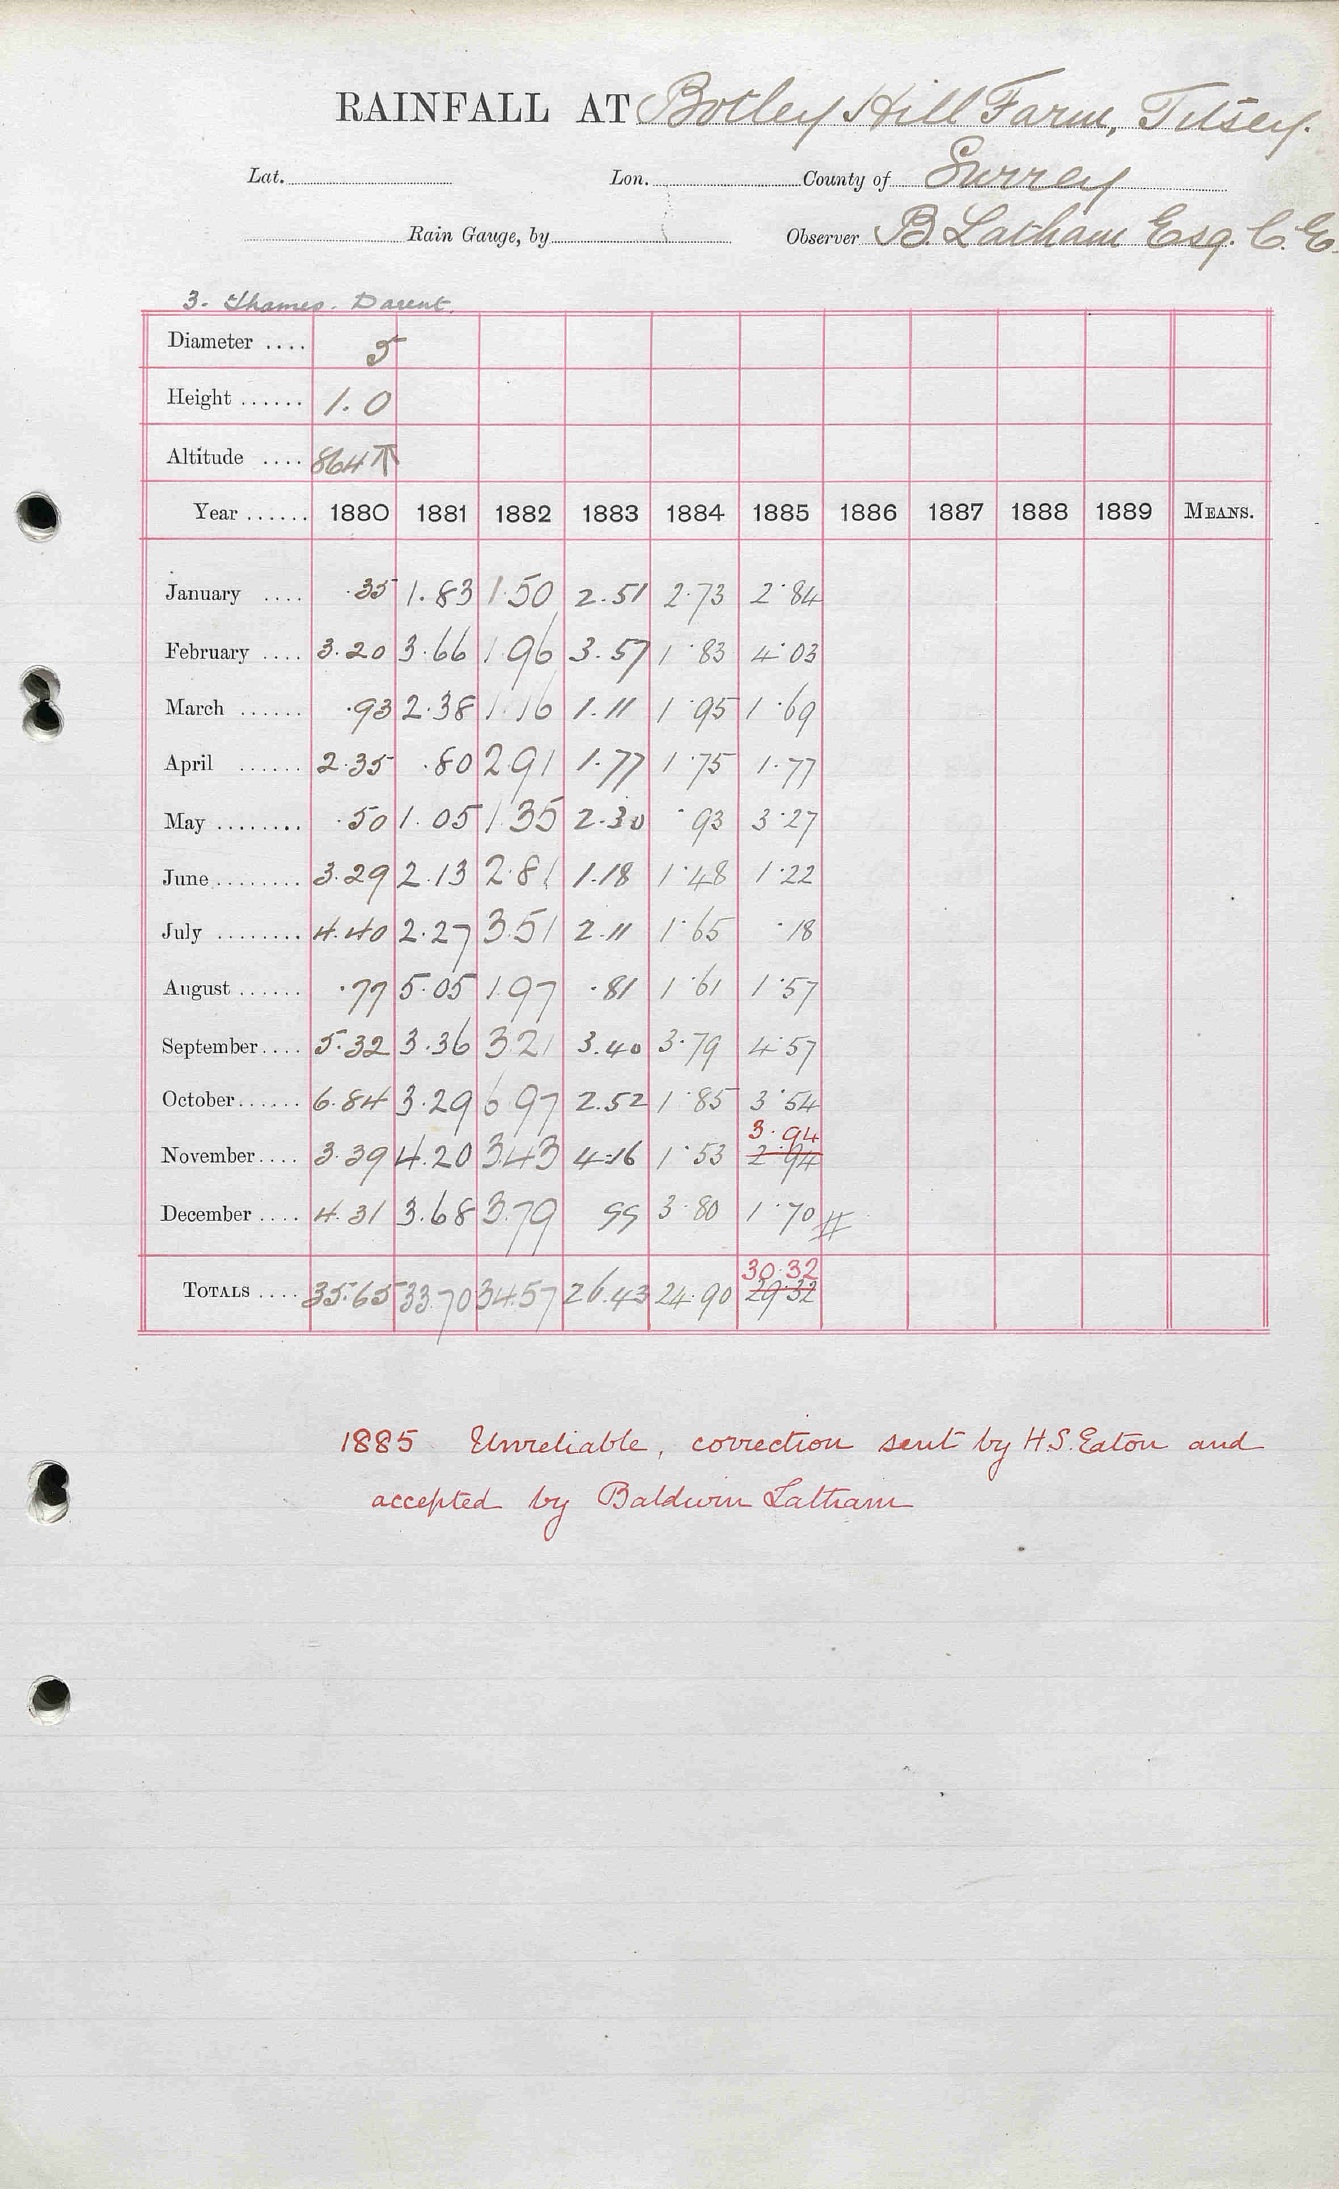 RAINFALL AT Botley Hill Farm, Titsey.
Lat. Lon. County of Surrey
Rain Gauge, by Observer B. Latham Esq. C.E.
3. Thames. Darent.
Diameter .... 5
Height ...... 1.0
Altitude .... 864
Year ...... 1880 1881 1882 1883 1884 1885 1886 1887 1888 1889 MEANS.
January .... .35 1.83 1.50 2.51 2.73 2.84
February .... 3.20 3.66 1.96 3.57 1.83 4.03
March ...... .93 2.38 1.16 1.11 1.95 1.69
April ...... 2.35 .80 2.91 1.77 1.75 1.77
May ........ .50 1.05 1.35 2.30 .93 3.27
June ........ 3.29 2.13 2.81 1.18 1.48 1.22
July ........ 4.40 2.27 3.51 2.11 1.65 .18
August ...... .77 5.05 1.97 .81 1.61 1.57
September .... 5.32 3.36 3.21 3.40 3.79 4.57
October ...... 6.84 3.29 6.97 2.52 1.85 3.54
3.94
November .... 3.39 4.20 3.43 4.16 1.53 2.94
December .... 4.31 3.68 3.79 99 3.80 1.70 #
30.32
TOTALS .... 35.65 33.70 34.57 26.43 24.90 29.32
1885 Unreliable, correction sent by H.S. Eaton and
accepted by Baldwin Latham